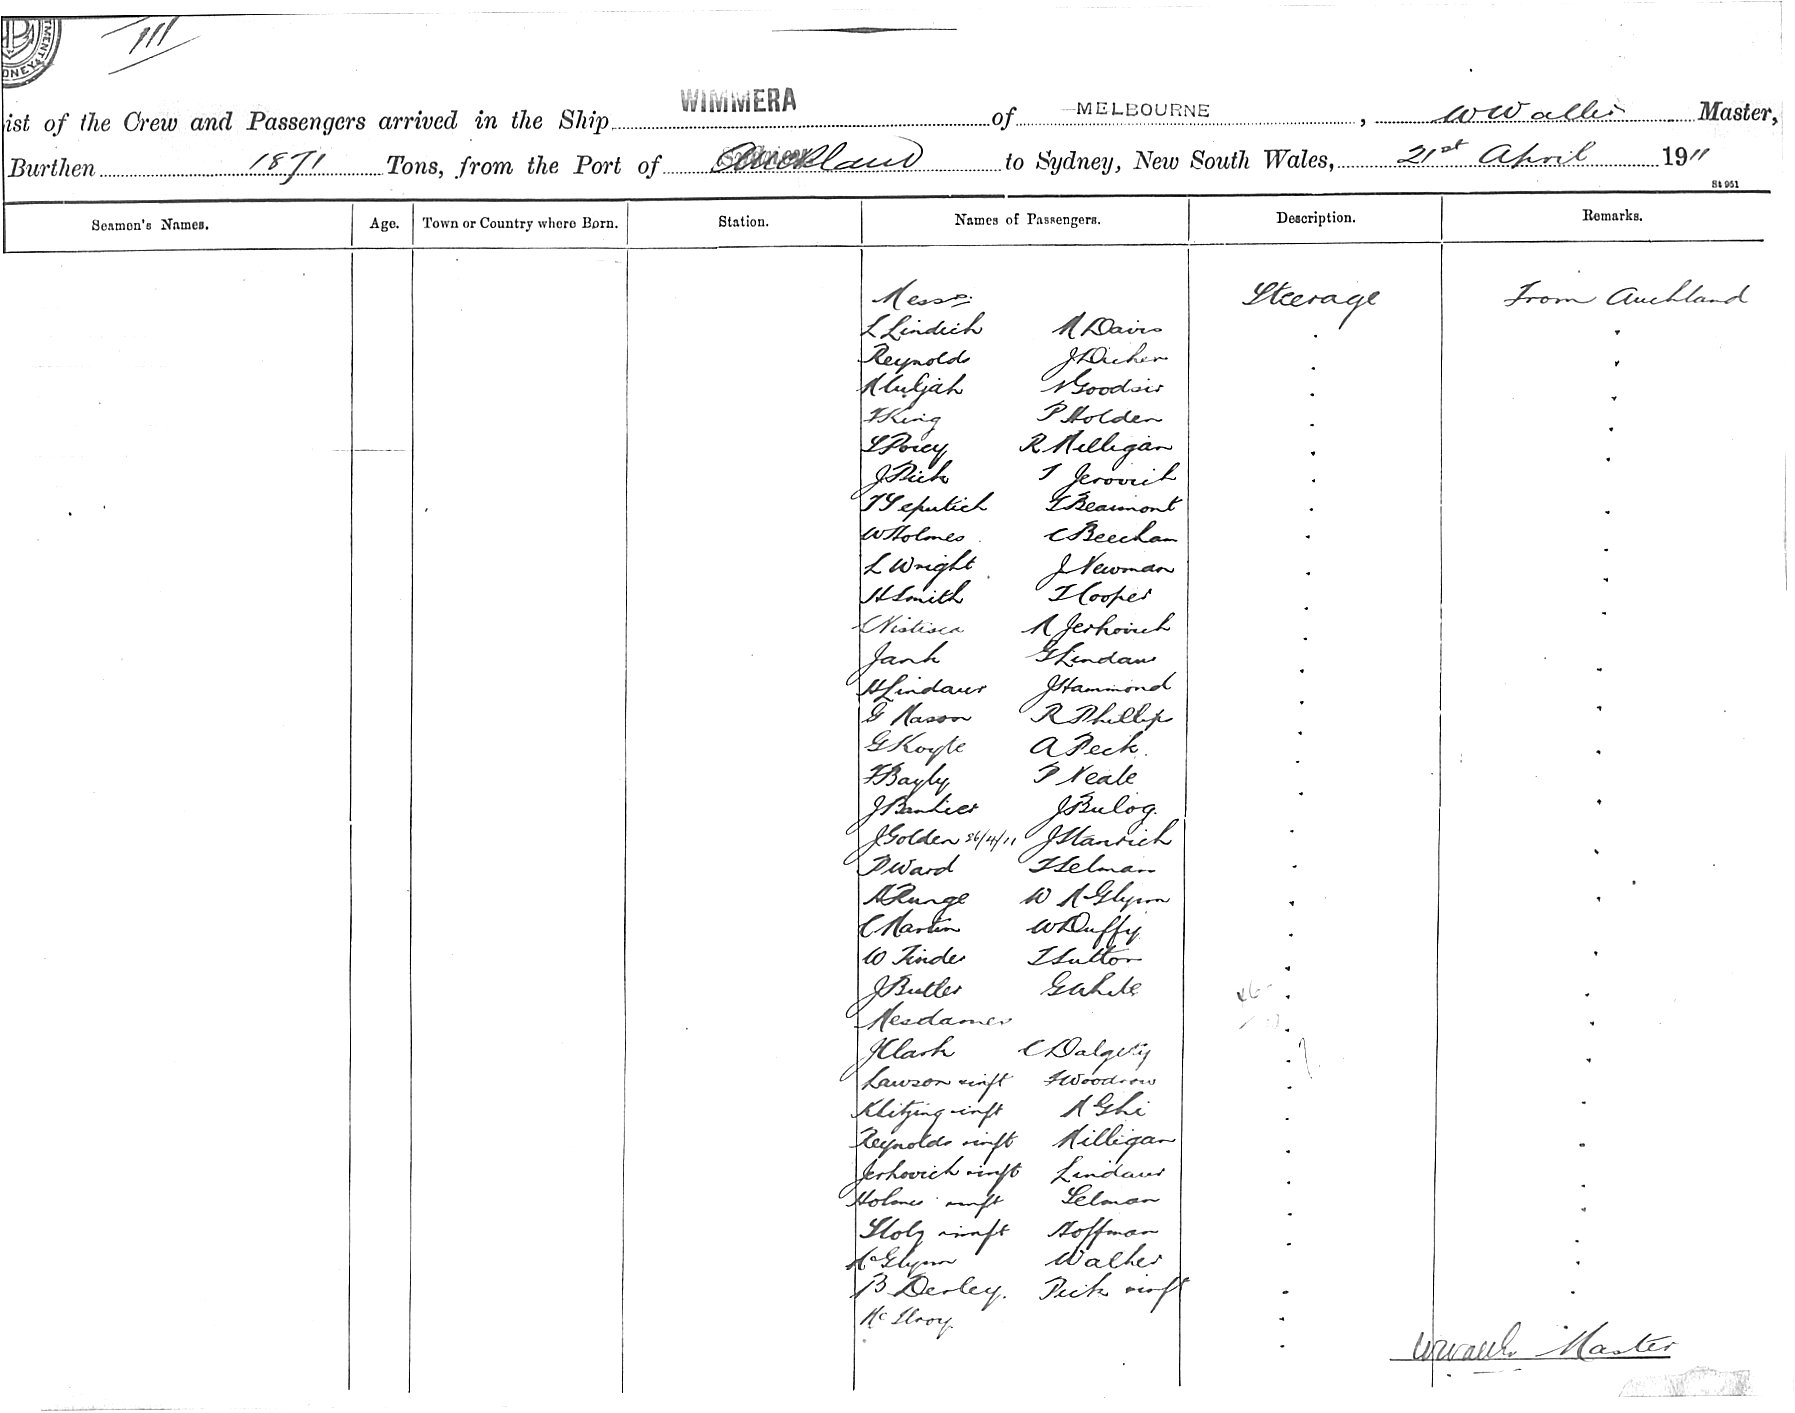 III
WIMMERA
MELBOURNE
ist of the Crew and Passengers arrived in the Ship of , W Waller Master,
Burthen 1871 Tons, from the Port of Auckland to Sydney, New South Wales, 21st April 1911
St 951
Seamen's Names. Age. Town or Country where Born. Station. Names of Passengers. Description. Remarks.
Messrs Steerage From Auckland
L Lindich M Davis
Reynolds J Dicher
N Goodsir
F King P Holden
R Milligan
J Pick T Jerovich
G Beaumont
W Holmes C Beecham
L Wright J Newman
H Smith T Cooper
M Jerkovich
Jank G Lindaur
H Lindaur J Hammond
G Mason R Phillips
G Koyle A Peck.
F Bayly P Neale
J Bulog.
J Golden 26/4/11 J Stanrich
P Ward T Selman
H Runge W McGlynn
C Martin W Duffy
W Tinde T Sutton
J Butler G White
Mesdames
J Clark C Dalgety
Lawson & inft F Woodrow
Klitzing & inft
Reynolds & inft Milligan
Jerkovich & inft Lindaur
Holmes & inft Selman
Stolz & inft Hoffman
McGlynn Walker
B Derley. Pick & inft
McIlroy.
W Waller Master